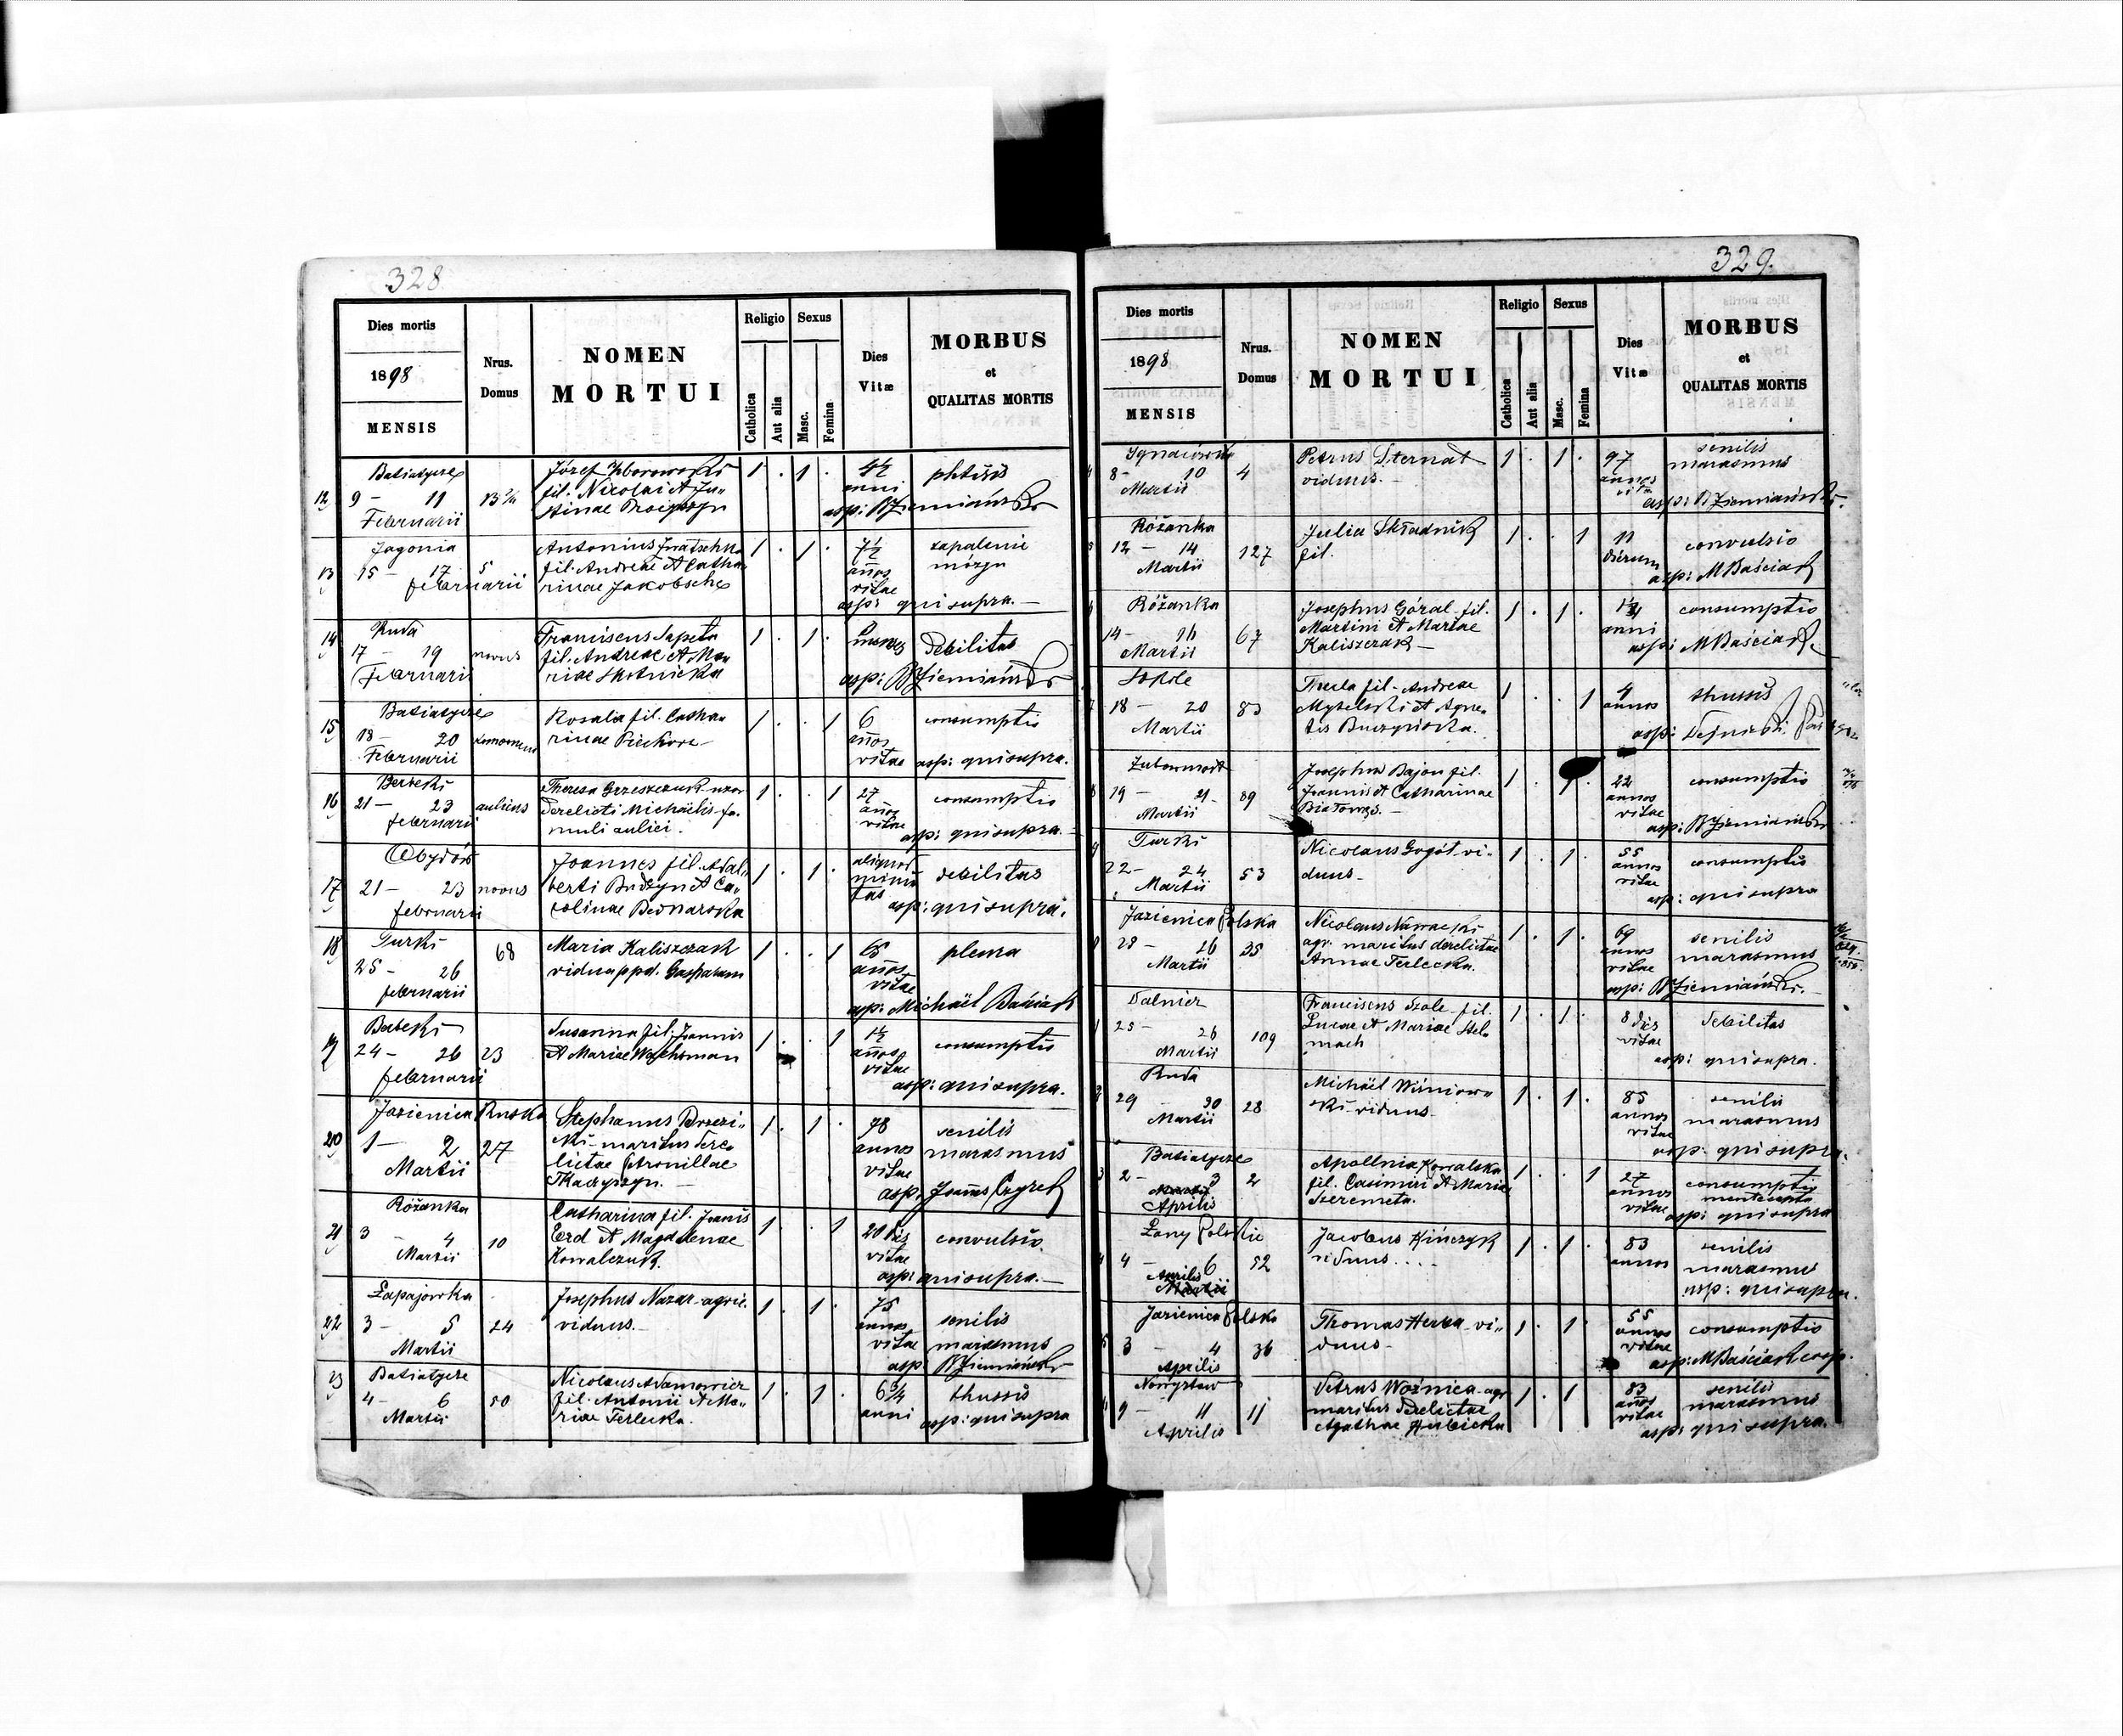 328
Dies mortis
1898
MENSIS
Nrus.
Domus
NOMEN
MORTUI
Religio
Catholica
Aut alia
Sexus
Masc.
Femina
Dies
Vitæ
MORBUS
et
QUALITAS MORTIS
12
Batiatycze
9 - 11
Februarii
Józef
fil. Nicolai et Ju-
stinae
1 . 1 .
4½
anni
phtisis
asp: BZiemiański
13
Jagonia
15 - 17
februarii
5
Antonius
fil. Andreae et Catha-
rinae
1 . 1 .
7½
annos
vitae
zapalenie
mózgu
asp: qui supra.
14
Ruda
17 - 19
Februarii
novus
Franciscus Sapeta
fil. Andreae et Ma-
riae Skotnicka
1 . 1 .
menses
debilitas
asp: BZiemiański
15
Batiatycze
18 - 20
Februarii
Rosalia fil. Catha-
rinae
1 . . 1
6
annos
vitae
consumptio
asp: qui supra.
16
21 - 23
februarii
aulicus
Theresa Grzeszczuk uxor
derelicti Michaëlis fa-
muli aulici.
1 . . 1
27
annos
vitae
consumptio
asp: qui supra.
17
Obydów
21 - 23
februarii
novus
Joannes fil. Adal-
berti Budzyn et Ca-
rolinae Bednarska
1 . 1 .
aliquot
minu-
tas
debilitas
asp: qui supra.
18
Turki
25 - 26
februarii
68
Maria Kaliszczak
vidua ppd. Gasparum
1 . . 1
65
annos
vitae
pleura
asp: Michaël Baściak
19
24 - 26
februarii
23
Susanna fil. Joannis
et Mariae
1 . . 1
1½
annos
vitae
consumptio
asp: qui supra.
20
Jazienica Ruska
1 - 2
Martii
27
Stephanus Brzezi-
cki maritus dere-
lictae Petronillae
1 . 1 .
78
annos
vitae
senilis
marasmus
asp. Joañs
21
Różanka
3 - 4
Martii
10
Catharina fil. Joañis
Erd et Magdalenae
Kowalczuk.
1 . . 1
20 dies
vitae
convulsio.
asp: qui supra.
22
Łapajówka
3 - 5
Martii
24
Josephus Nazar agric.
viduus.
1 . 1 .
75
annos
vitae
senilis
marasmus
asp: BZiemiański
23
Batiatycze
4 - 6
Martii
50
Nicolaus Adamowicz
fil. Antonii et Ma-
riae Terlecka.
1 . 1 .
6¾
anni
thussis
asp: qui supra
329.
Dies mortis
1898
MENSIS
Nrus.
Domus
NOMEN
MORTUI
Religio
Catholica
Aut alia
Sexus
Masc.
Femina
Dies
Vitæ
MORBUS
et
QUALITAS MORTIS
Ignacówka
8 - 10
Martii
4
Petrus Sternat
viduus.
1 . 1 .
97
annos
senilis
marasmus
asp: BZiemiański.
Różanka
12 - 14
Martii
127
Julia Składnik
fil.
1 . . 1
11
dierum
convulsio
asp: MBaściak
Różanka
14 - 16
Martii
67
Josephus Góral fil.
Martini et Mariae
Kaliszczak
1 . 1 .
anni
consumptio
asp: MBaściak.
18 - 20
Martii
Thecla fil. Andreae
et Agne-
tis
1 . . 1
4
annos
thussis
asp:
19 - 21
Martii
89
Bajon fil.
Joannis et Catharinae
22
annos
vitae
consumptio
asp: BZiemiański
Turki
22 - 24
Martii
53
Nicolaus Gogół vi-
duus
1 . 1 .
55
annos
vitae
consumptio
asp: qui supra
Jazienica Polska
26
Martii
35
Nicolaus
agr. maritus derelictae
Annae Terlecka.
1 . 1 .
69
annos
vitae
senilis
marasmus
asp: BZiemiański.
Dalnicz
25 - 26
Martii
109
Franciscus Szole fil.
Lucae et Mariae Stel-
mach
1 . 1 .
8 dies
vitae
debilitas
asp: qui supra.
Ruda
29 - 30
Martii
28
Michaël Wiśniow-
ski viduus.
1 . 1 .
85
annos
vitae
senilis
marasmus
asp: qui supra.
Batiatycze
2 - 3
Aprilis
2
Apollnia Kowalska
fil. Casimiri et Mariae
Szeremeta.
1 . . 1
27
annos
vitae
consumptio
asp: qui supra
Łany Polskie
4 - 6
Aprilis
Martii
52
Jacobus Hińczyk
viduus....
1 . 1 .
83
annos
senilis
marasmus
asp: qui supra.
Jazienica Polska
3 - 4
Aprilis
36
Thomas vi-
duus
1 . 1
55
annos
vitae
consumptio
asp: MBaściak coop.
9 - 11
Aprilis
11
Petrus Woźnica agr
maritus derelictae
Agathae Hubicka
1 . 1
83
años
vitae
senilis
marasmus
asp: qui supra.